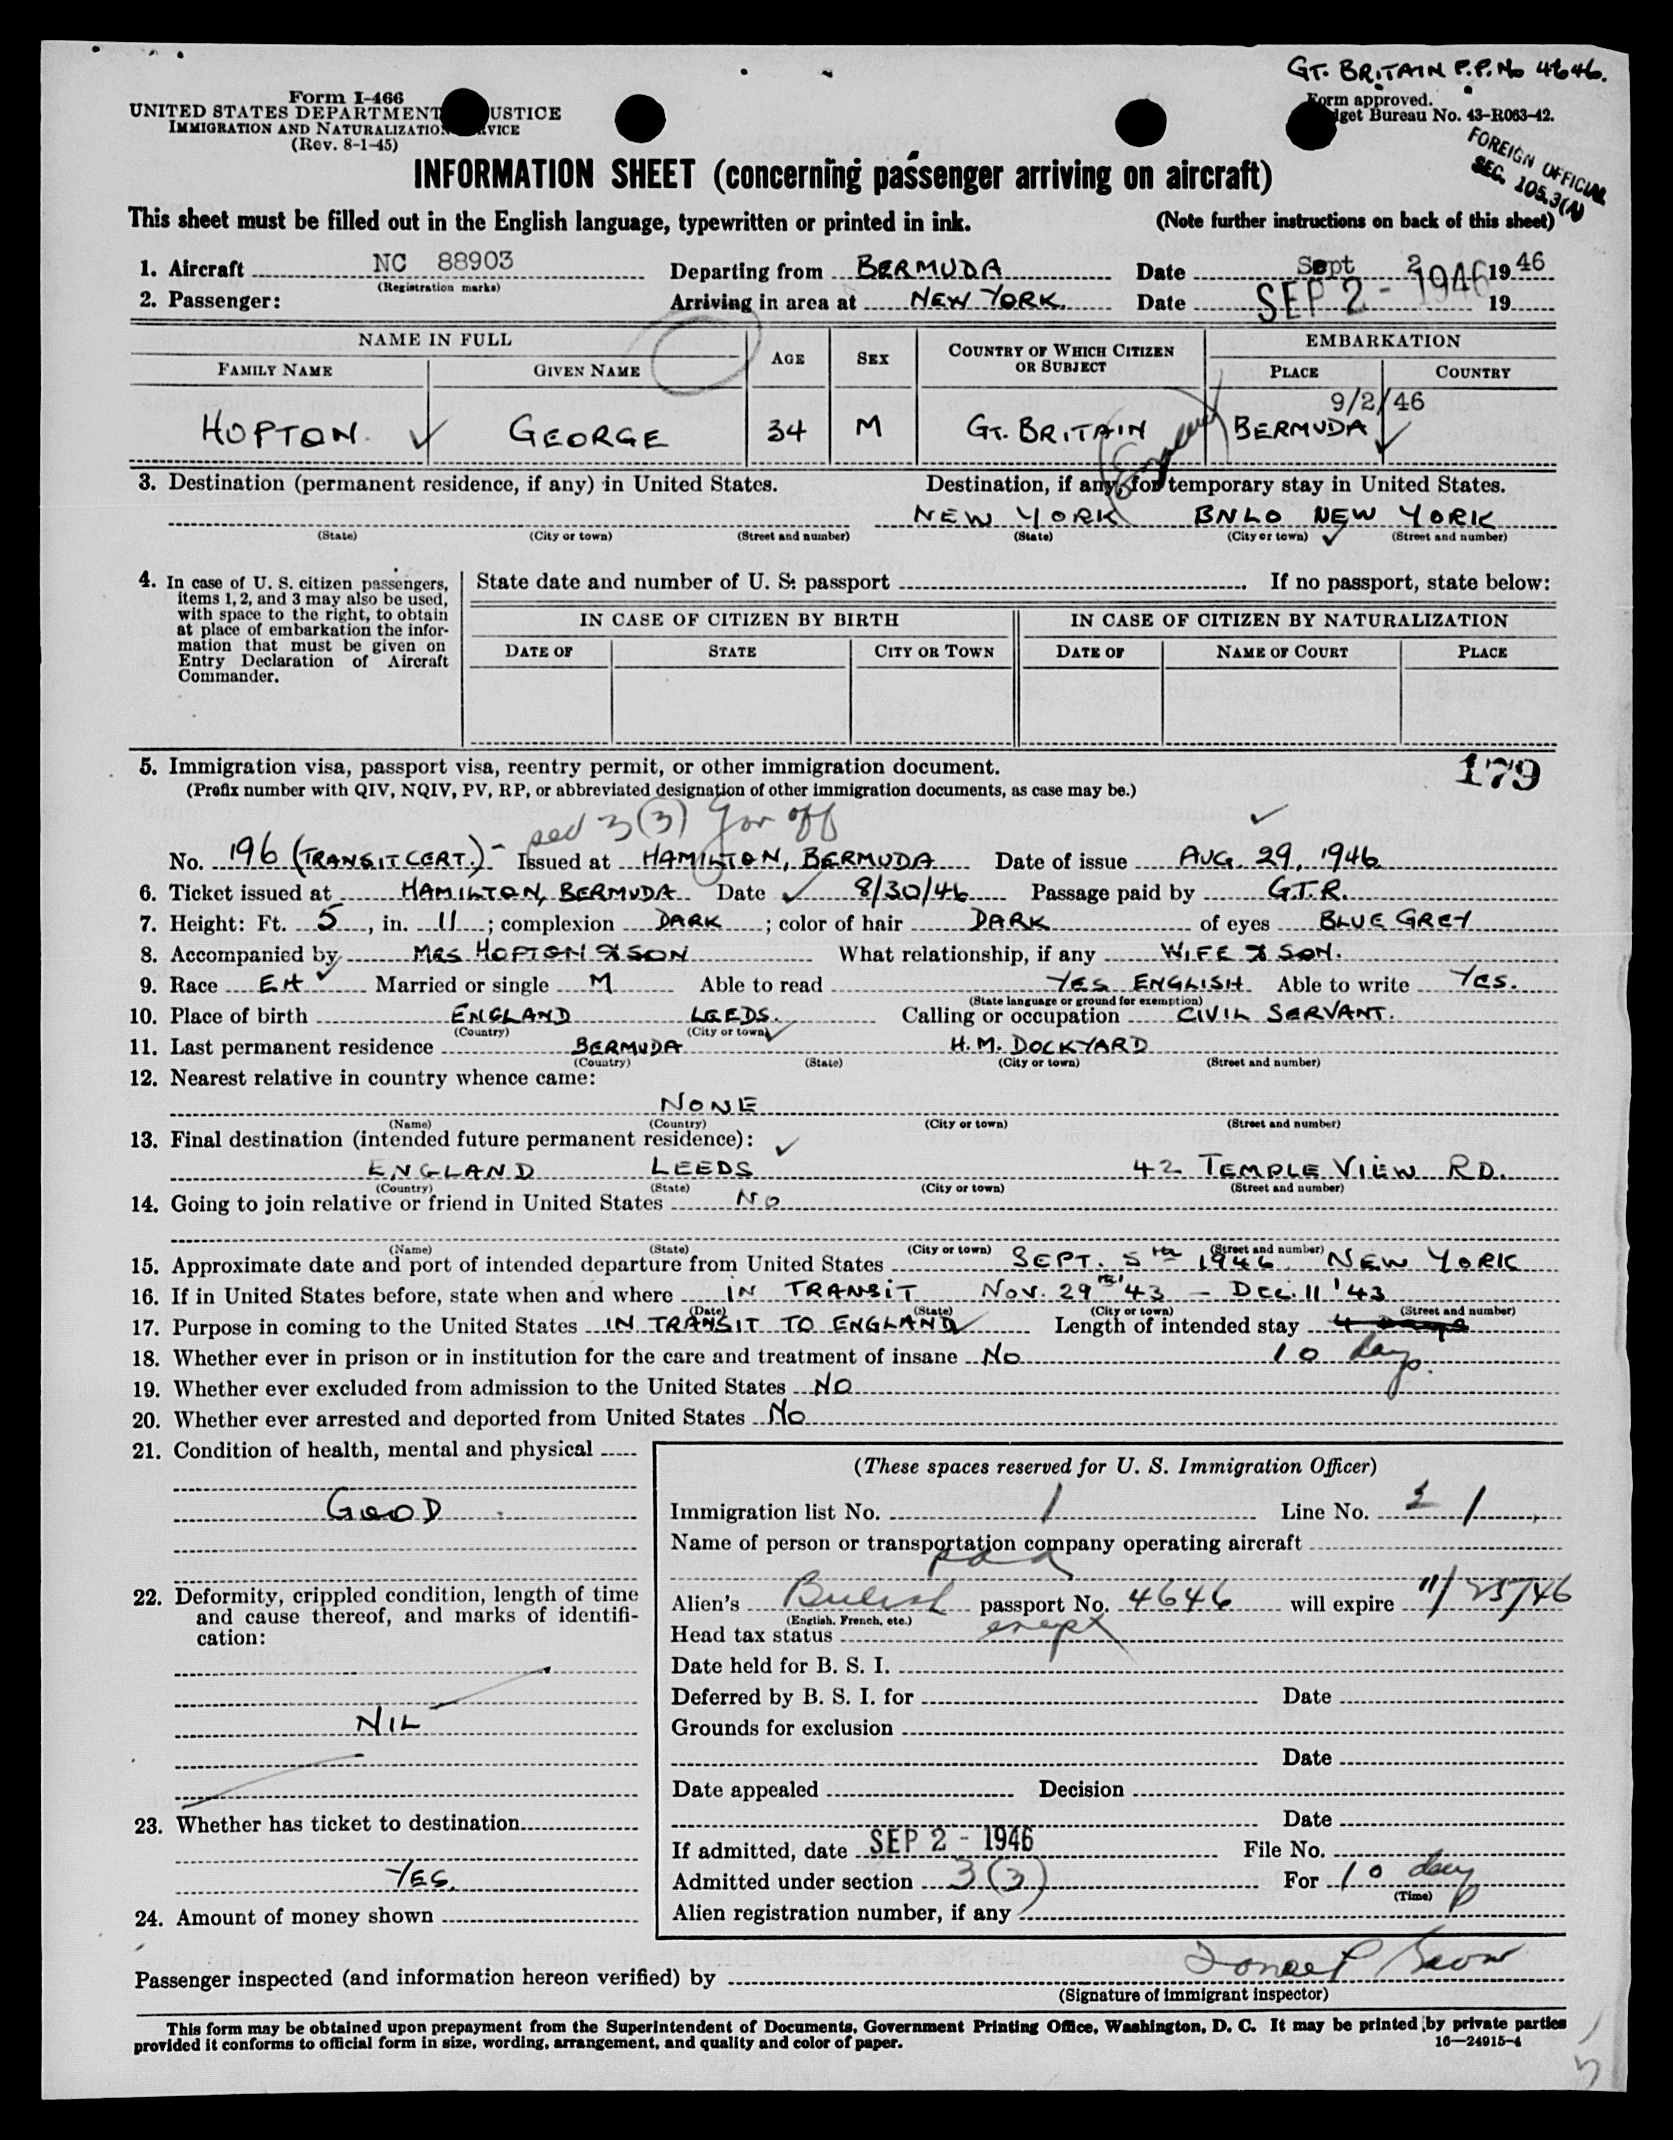 GT. BRITAIN P.P. No 4646.
Form I-466
UNITED STATES DEPARTMENT USTICE
IMMIGRATION AND NATURALIZATION VICE
(Rev. 8-1-45)
Form approved.
get Bureau No. 43-R063-42.
FOREIGN OFFICIAL
SEC. 105.3(A)
INFORMATION SHEET (concerning passenger arriving on aircraft)
This sheet must be filled out in the English language, typewritten or printed in ink. (Note further instructions on back of this sheet)
1. Aircraft NC 88903 Departing from BERMUDA Date Sept 2 1946
(Registration marks)
2. Passenger: Arriving in area at NEW YORK. Date SEP 2 - 1946 19
NAME IN FULL AGE SEX COUNTRY OF WHICH CITIZEN OR SUBJECT EMBARKATION
FAMILY NAME GIVEN NAME PLACE COUNTRY
9/2/46
HOPTON. GEORGE 34 M GT. BRITAIN BERMUDA
3. Destination (permanent residence, if any) in United States. Destination, if any, for temporary stay in United States.
NEW YORK BNLO NEW YORK
(State) (City or town) (Street and number) (State) (City or town) (Street and number)
4. In case of U. S. citizen passengers, items 1, 2, and 3 may also be used, with space to the right, to obtain at place of embarkation the information that must be given on Entry Declaration of Aircraft Commander.
State date and number of U. S. passport If no passport, state below:
IN CASE OF CITIZEN BY BIRTH IN CASE OF CITIZEN BY NATURALIZATION
DATE OF STATE CITY OR TOWN DATE OF NAME OF COURT PLACE
5. Immigration visa, passport visa, reentry permit, or other immigration document. 179
(Prefix number with QIV, NQIV, PV, RP, or abbreviated designation of other immigration documents, as case may be.)
sec 3(3) Gov off
No. 196 (TRANSIT CERT.) - Issued at HAMILTON, BERMUDA Date of issue AUG. 29, 1946
6. Ticket issued at HAMILTON, BERMUDA Date 8/30/46 Passage paid by G.T.R.
7. Height: Ft. 5, in. 11; complexion DARK; color of hair DARK of eyes BLUE GREY
8. Accompanied by MRS HOPTON & SON What relationship, if any WIFE & SON.
9. Race EH Married or single M Able to read YES ENGLISH Able to write YES.
(State language or ground for exemption)
10. Place of birth ENGLAND LEEDS. Calling or occupation CIVIL SERVANT.
(Country) (City or town)
11. Last permanent residence BERMUDA H.M. DOCKYARD
(Country) (State) (City or town) (Street and number)
12. Nearest relative in country whence came:
NONE
(Name) (Country) (City or town) (Street and number)
13. Final destination (intended future permanent residence):
ENGLAND LEEDS 42 TEMPLE VIEW RD.
(Country) (State) (City or town) (Street and number)
14. Going to join relative or friend in United States NO
(Name) (State) (City or town) (Street and number)
15. Approximate date and port of intended departure from United States SEPT. 5TH 1946. NEW YORK
16. If in United States before, state when and where IN TRANSIT NOV. 29TH '43 - DEC. 11 '43
(Date) (State) (City or town) (Street and number)
17. Purpose in coming to the United States IN TRANSIT TO ENGLAND Length of intended stay 4 days
18. Whether ever in prison or in institution for the care and treatment of insane No 10 days.
19. Whether ever excluded from admission to the United States NO
20. Whether ever arrested and deported from United States No
21. Condition of health, mental and physical
GOOD
22. Deformity, crippled condition, length of time and cause thereof, and marks of identification:
NIL
23. Whether has ticket to destination
YES.
24. Amount of money shown
(These spaces reserved for U. S. Immigration Officer)
Immigration list No. 1 Line No. 1
Name of person or transportation company operating aircraft
paa
Alien's British passport No. 4646 will expire 11/25/46
(English, French, etc.)
Head tax status exept
Date held for B. S. I.
Deferred by B. S. I. for Date
Grounds for exclusion
Date
Date appealed Decision
Date
If admitted, date SEP 2 - 1946 File No.
Admitted under section 3(3) For 10 days
(Time)
Alien registration number, if any
Passenger inspected (and information hereon verified) by
(Signature of immigrant inspector)
This form may be obtained upon prepayment from the Superintendent of Documents, Government Printing Office, Washington, D. C. It may be printed by private parties
provided it conforms to official form in size, wording, arrangement, and quality and color of paper. 16—24915-4